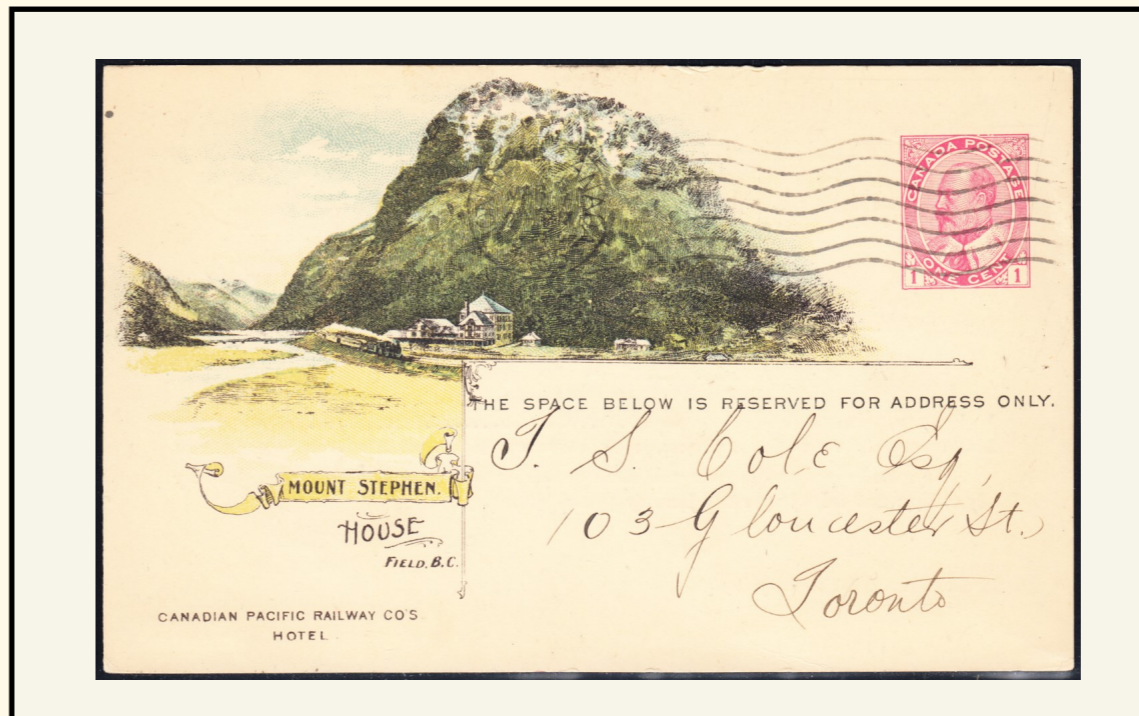 CANADA POSTAGE
ONE CENT
1 1
THE SPACE BELOW IS RESERVED FOR ADDRESS ONLY.
T. S. Cole Esq.
103 Gloucester St.,
Toronto
MOUNT STEPHEN.
HOUSE
FIELD, B.C.
CANADIAN PACIFIC RAILWAY CO'S
HOTEL